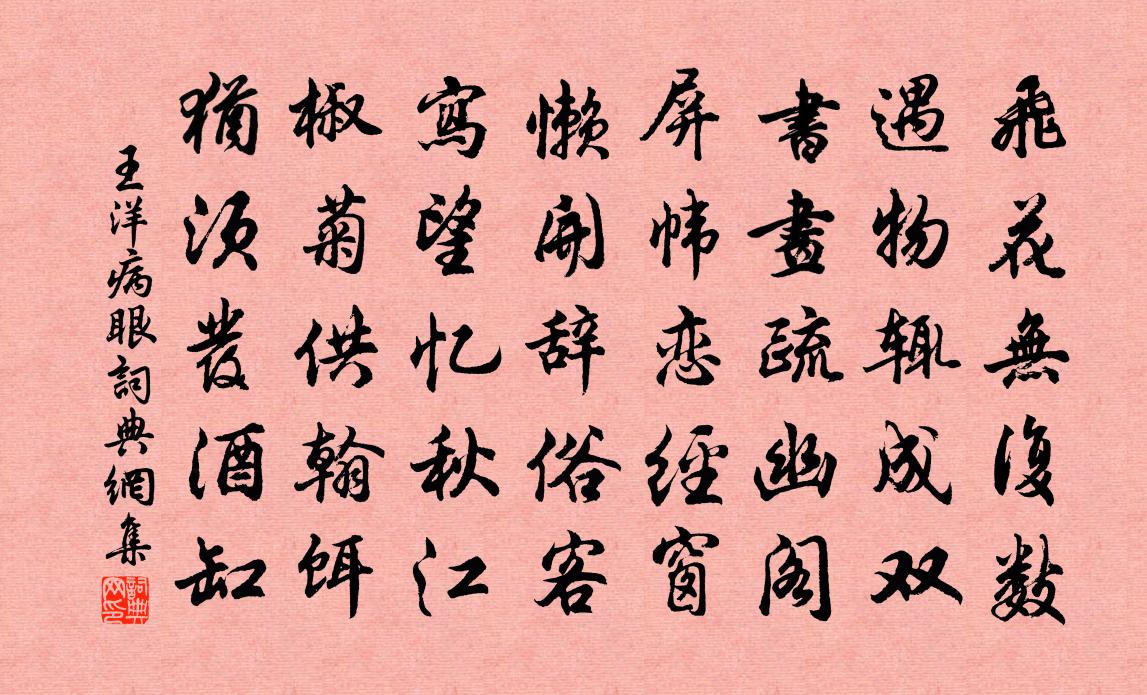 飛花無復数
遇物辄成双
書畫疏幽阁
屏帏恋經窗
懒開辞俗客
寫望忆秋江
椒菊供翰饵
猶须發酒缸
王洋病眼詞典網集
詞典网印